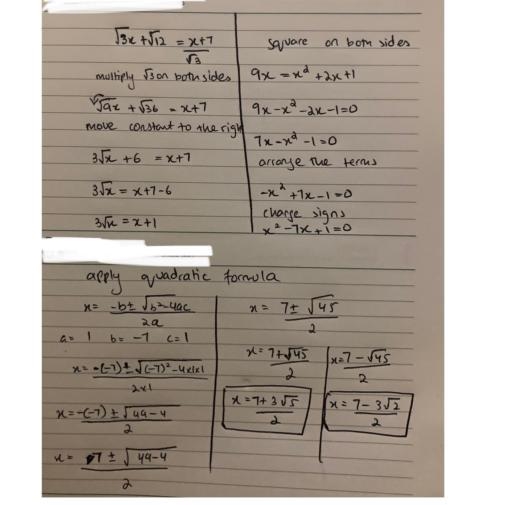 √3x + √12 = x+7/√3
multiply √3 on both sides
√9x + √36 = x+7
move constant to the right
3√x + 6 = x+7
3√x = x+7-6
3√x = x+1
square on both sides
9x = x² + 2x + 1
9x - x² - 2x - 1 = 0
7x - x² - 1 = 0
arrange the terms
-x² + 7x - 1 = 0
change signs
x² - 7x + 1 = 0
apply quadratic formula
x = -b ± √b² - 4ac/2a
a = 1 b = -7 c = 1
x = -(-7) ± √(-7)² - 4x1x1/2x1
x = -(-7) ± √49 - 4/2
x = 7 ± √49 - 4/2
x = 7 ± √45/2
x = 7 + √45/2
x = 7 - √45/2
x = 7 + 3√5/2
x = 7 - 3√2/2